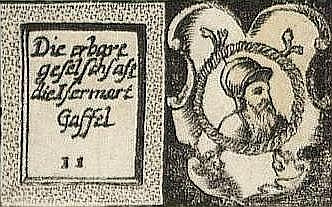 Die erbare
geselschaft
die Isermart
Gaffel
11